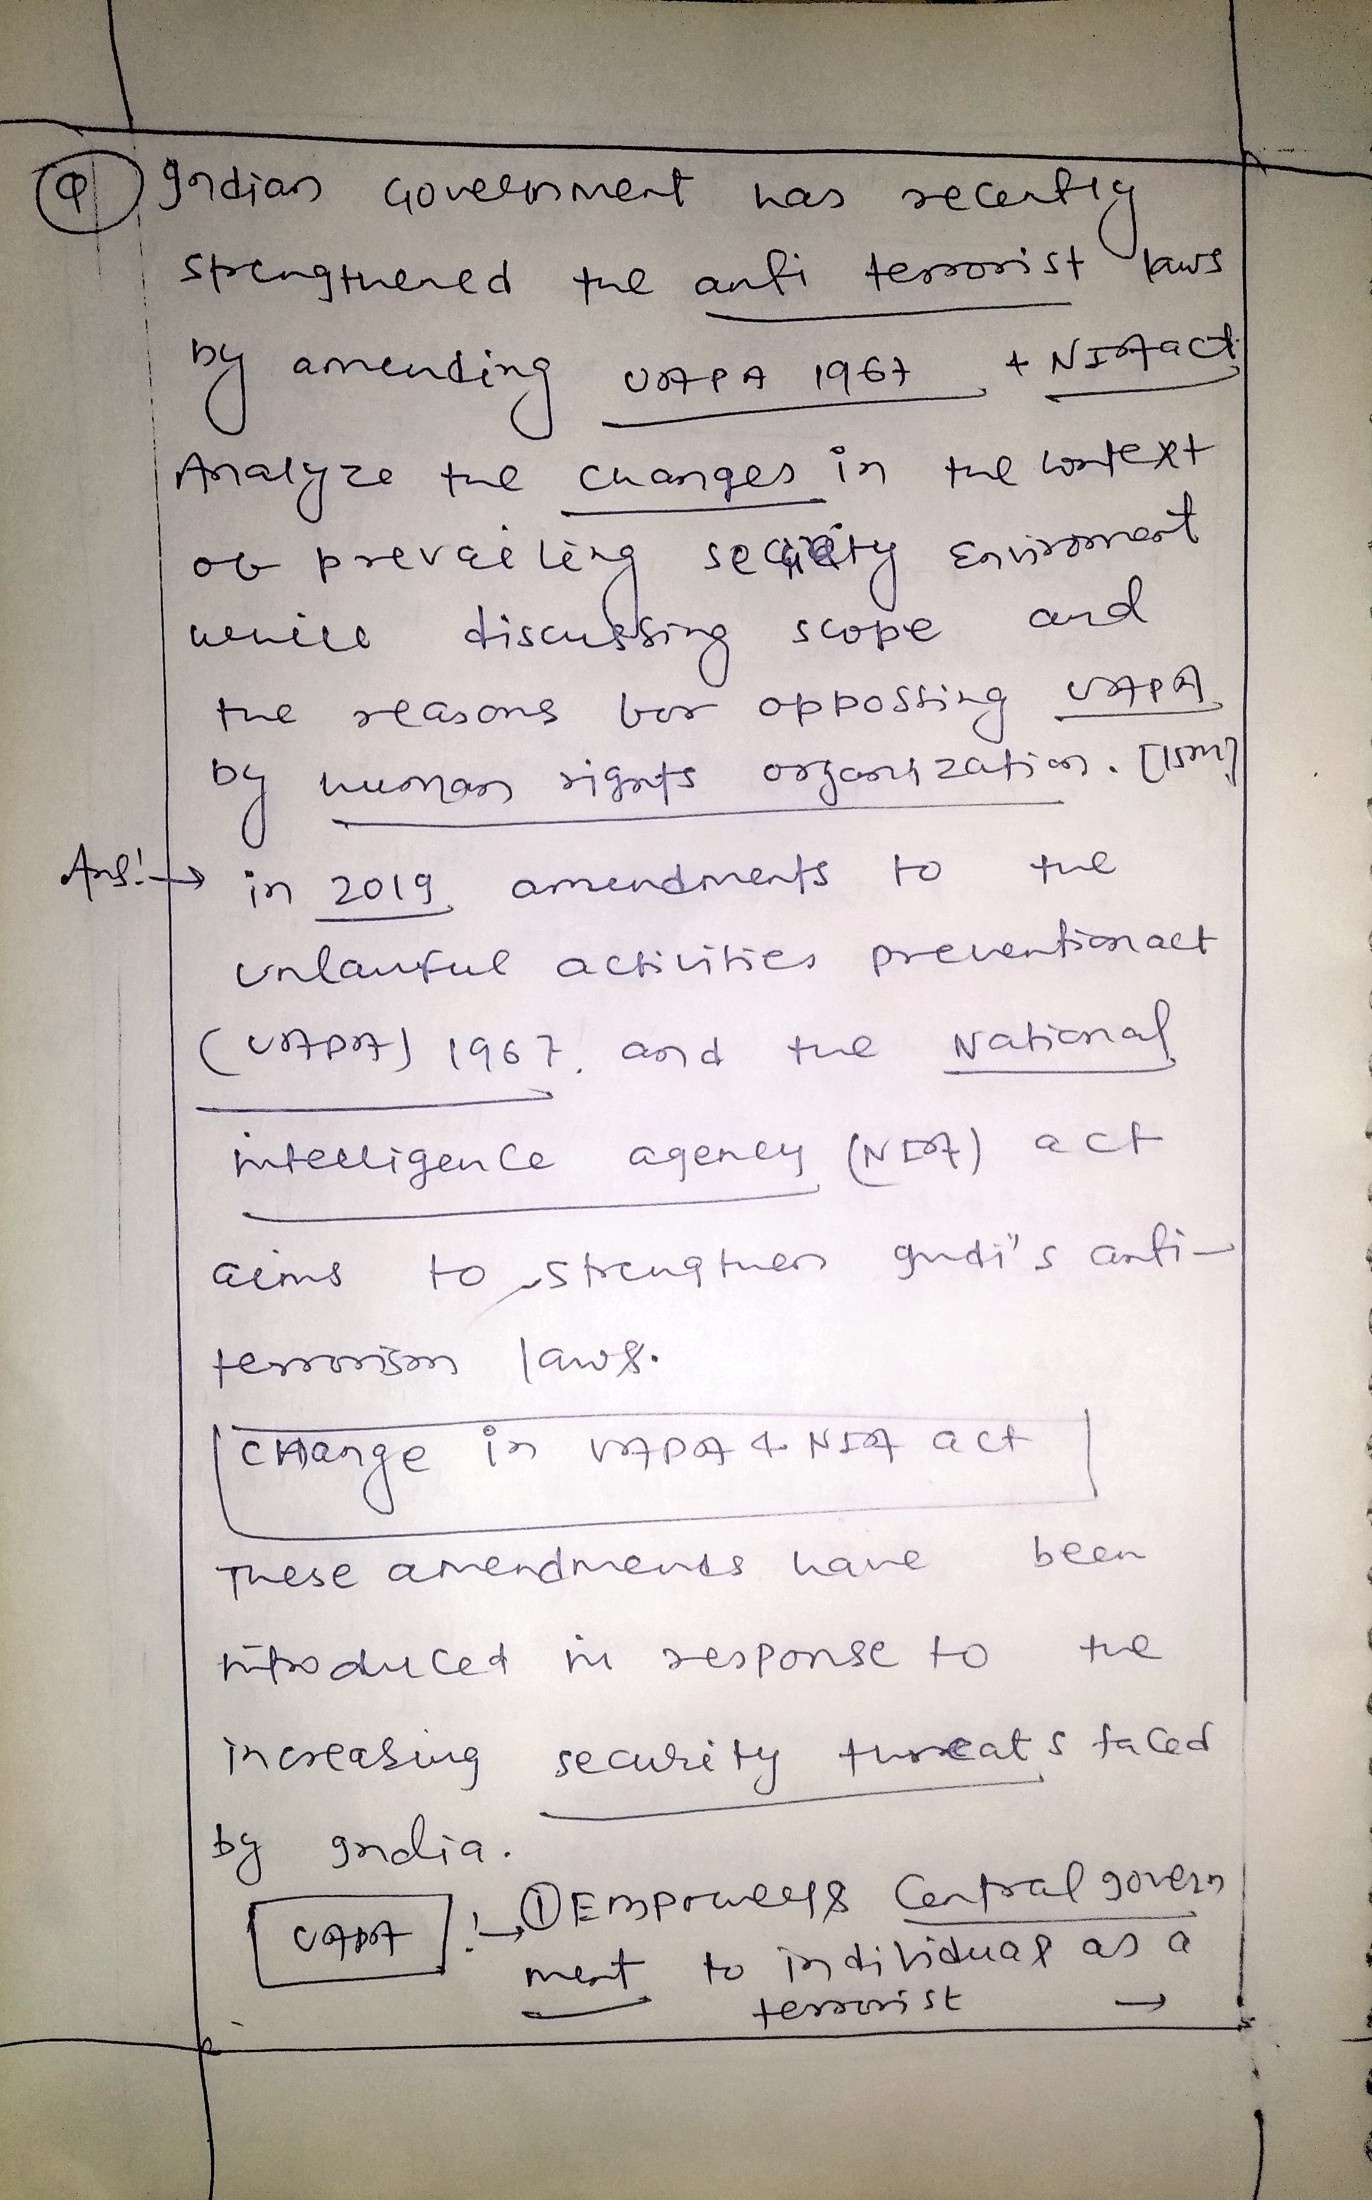 Q Indian Government has recently
strengthened the anti terrorist laws
by amending UAPA 1967 + NIA act
Analyze the changes in the context
of prevailing security Enviroment
while discussing scope and
the reasons for oppossing UAPA
by human rights organization. [15m]
Ans:→ in 2019 amendments to the
unlawful activities prevention act
(UAPA) 1967. and the National
intelligence agency (NIA) act
aims to strengthen Indi's anti-
terrorism laws.
CHange in UAPA & NIA act
These amendments have been
introduced in response to the
increasing security threats faced
by India.
UAPA :→ ① Empowers Central govern
ment to individual as a
terrorist →